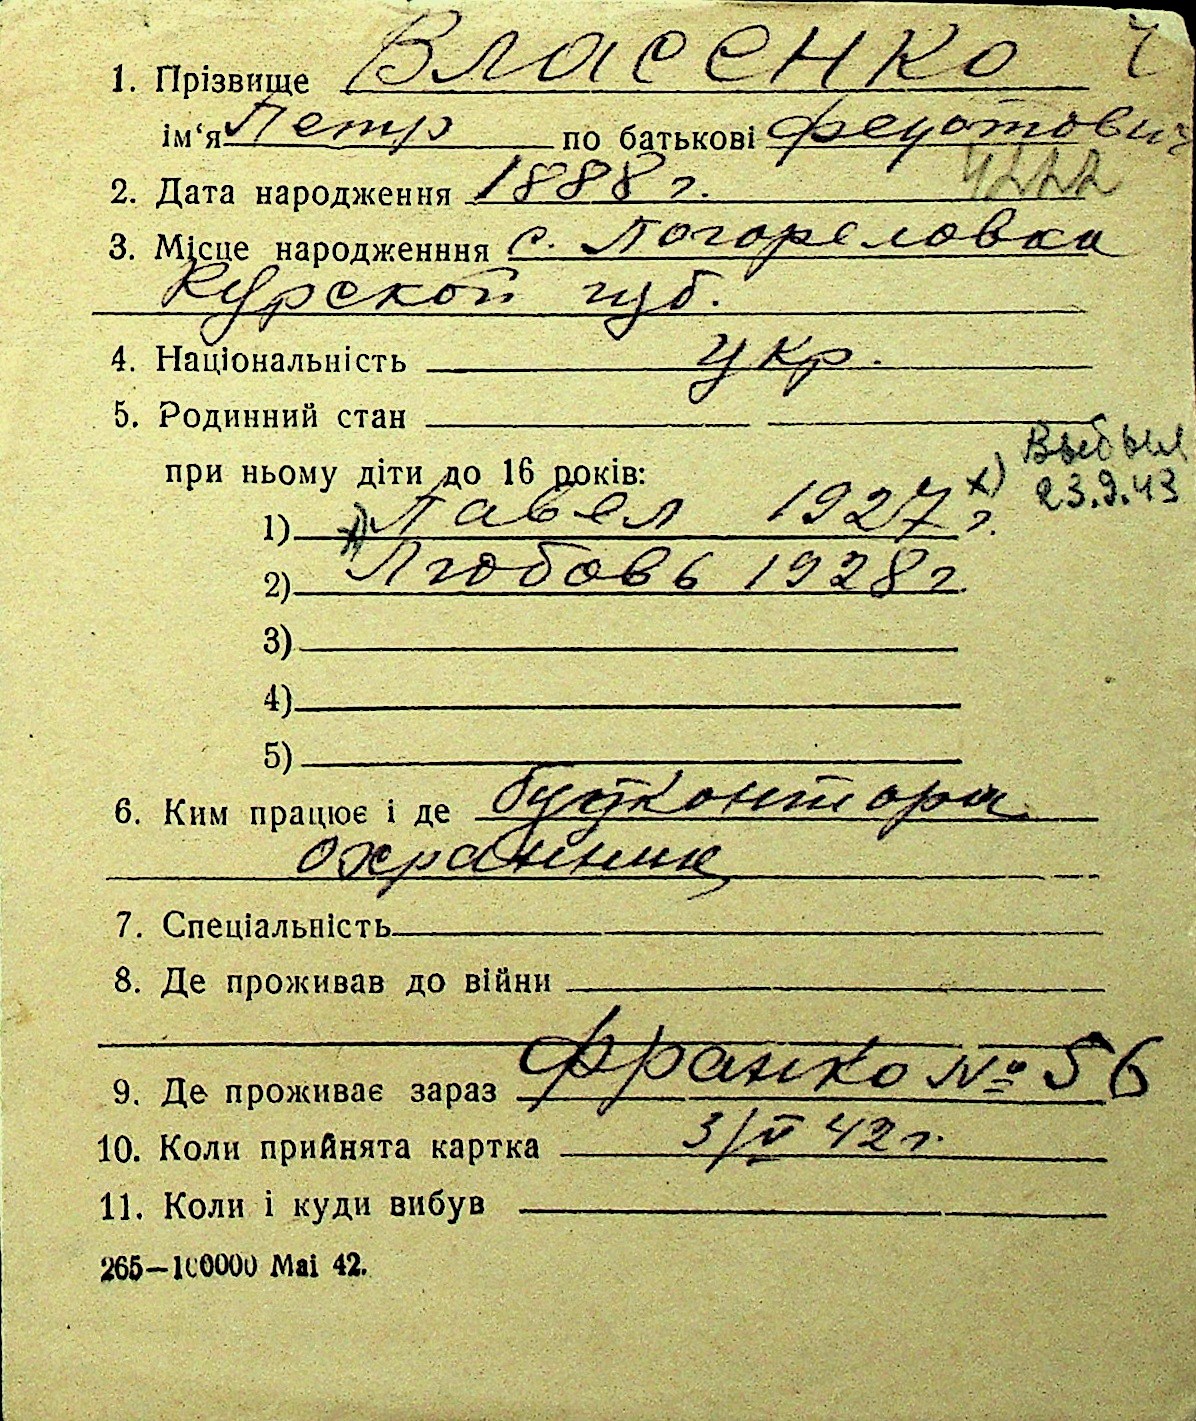 Ч
1. Прізвище Власенко
ім‘я Петр по батькові Федотович
4222
2. Дата народження 1888 г.
3. Місце народженння с. Погореловка
Курской губ.
4. Національність укр.
5. Родинний стан
Выбыл
при ньому діти до 16 років:
х) 23.9.43
1) х) Павел 1927 г.
2) Любовь 1928 г.
3)
4)
5)
6. Ким працює і де
охранник
7. Спеціальність
8. Де проживав до війни
9. Де проживає зараз Франко № 56
10. Коли прийнята картка 3/V 42 г.
11. Коли і куди вибув
265—100000 Mai 42.